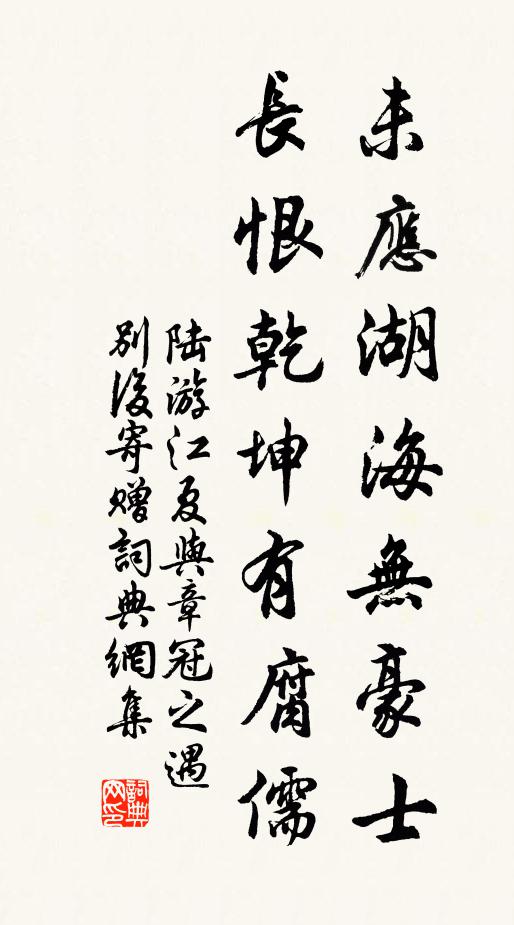 未應湖海無豪士
長恨乾坤有腐儒
陸游江夏與章冠之遇
別後寄贈詞典網集
詞典
网印